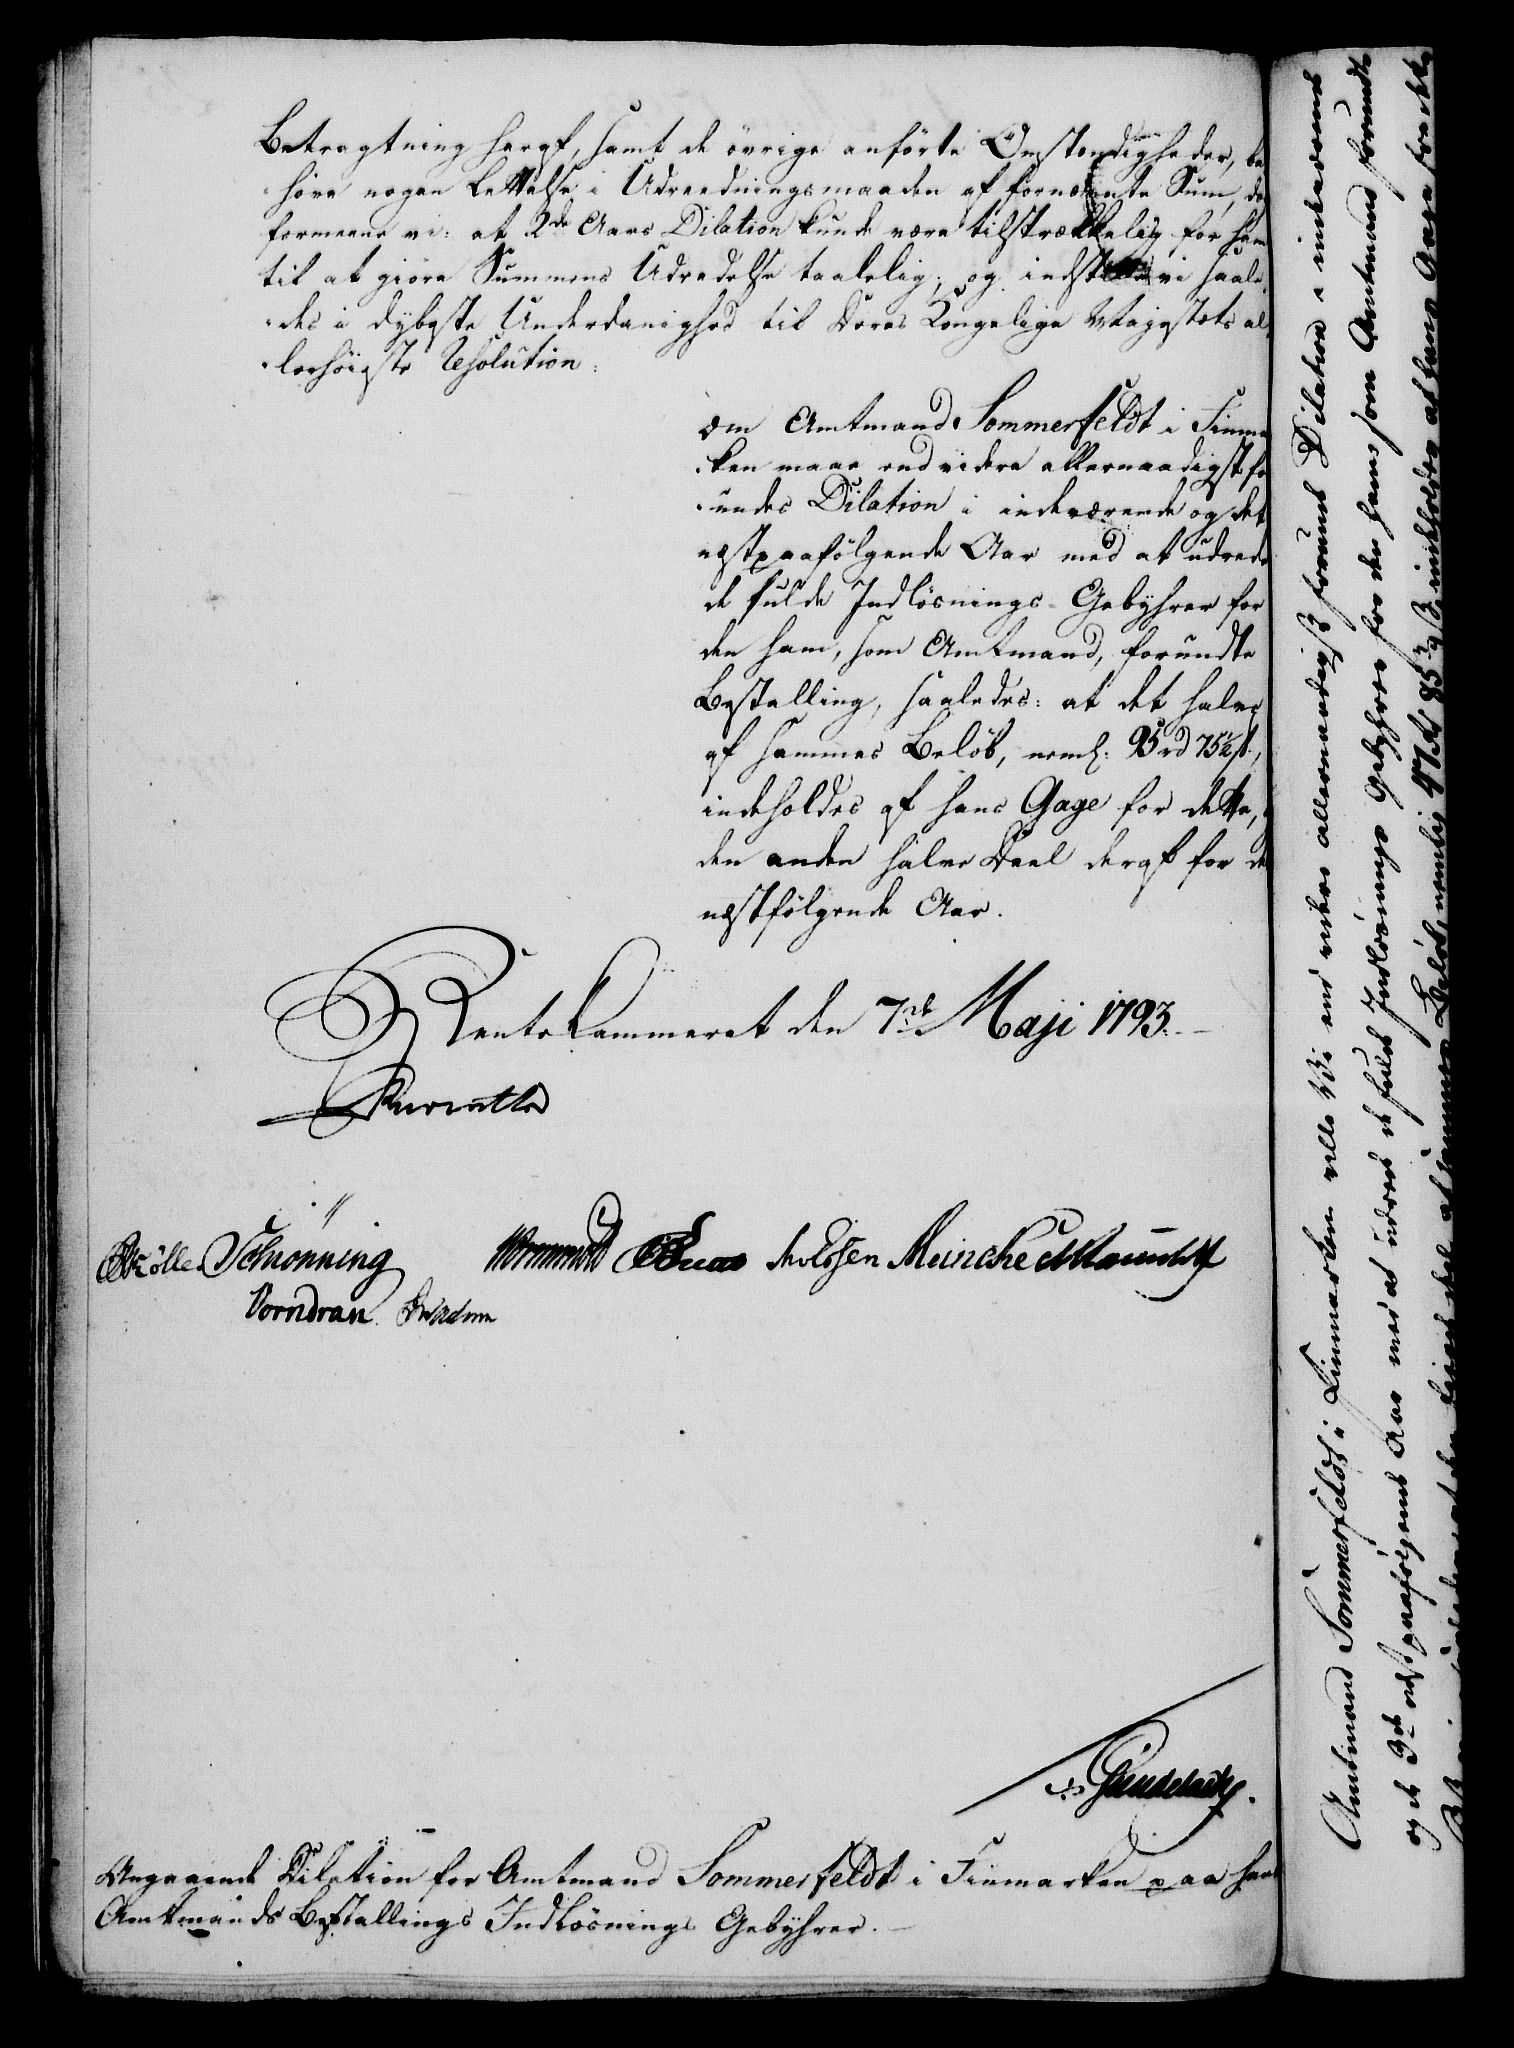 Betragtning heraf, samt de øvrige anførte Omstændigheder, be
høve nogen Lettelse i Udreedningsmaaden af fornævnte Sum, da
formeene vi: at 2de Aars Dilation kunde være tilstrækkelig for ham
til at giøre Summens Udredelse taalelig; og indstille vi saale-
des i dybeste Underdanighed til Deres Kongelige Majestæts al-
lerhøieste Resolution:
om Amtmand Sommerfeldt i Finmar
ken maae endvidere allernaadigst for
undes Dilation i indeværende og det
næstpaafølgende Aar med at udrede
de fulde Indløsnings-Gebyhrer for
den ham, som Amtmand, forundte
Bestalling, saaledes: at det halve
af sammes Beløb, neml: 95 rd 75½ s,
indeholdes af hans Gage for dette,
den anden halve Deel deraf for de
næstfølgende Aar.
Rentekammeret den 7de Maji 1793.
Møller Schiönning Wormskiold Meincke
Vorndran
Angaaende Dilation for Amtmand Sommerfeldt i Finmarken paa hans
Amtmands Bestallings Indløsnings Gebyhrer.
Amtmand Sommerfeldt i Finmarken ville Vi end videre allernaadigst forunde Dilation i indeværende
og det næstpaafølgende Aar med at udrede de fulde Indløsnings Gebyhrer for den ham som Amtmand forundte